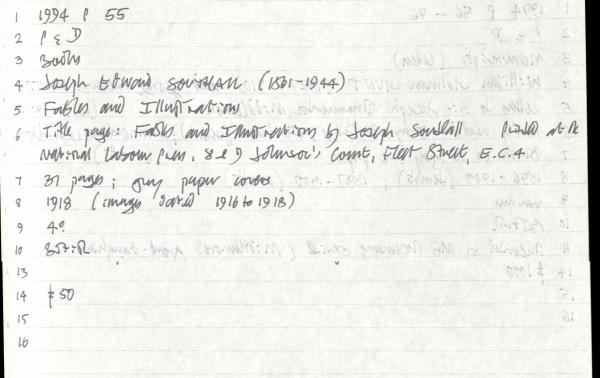 1 1994 P 55
2 P & D
3 Books
4 Joseph Edward Southall (1861-1944)
5 Fables and Illustrations
6 Title page: Fables and Illustrations by Joseph Southall Printed at the
National Labour Press, 8 & 9 Johnson's Court, Fleet Street, E.C.4
7 37 pages; grey paper covers
8 1918 (images dated 1916 to 1918)
9 4o
10
13
14 £50
15
16